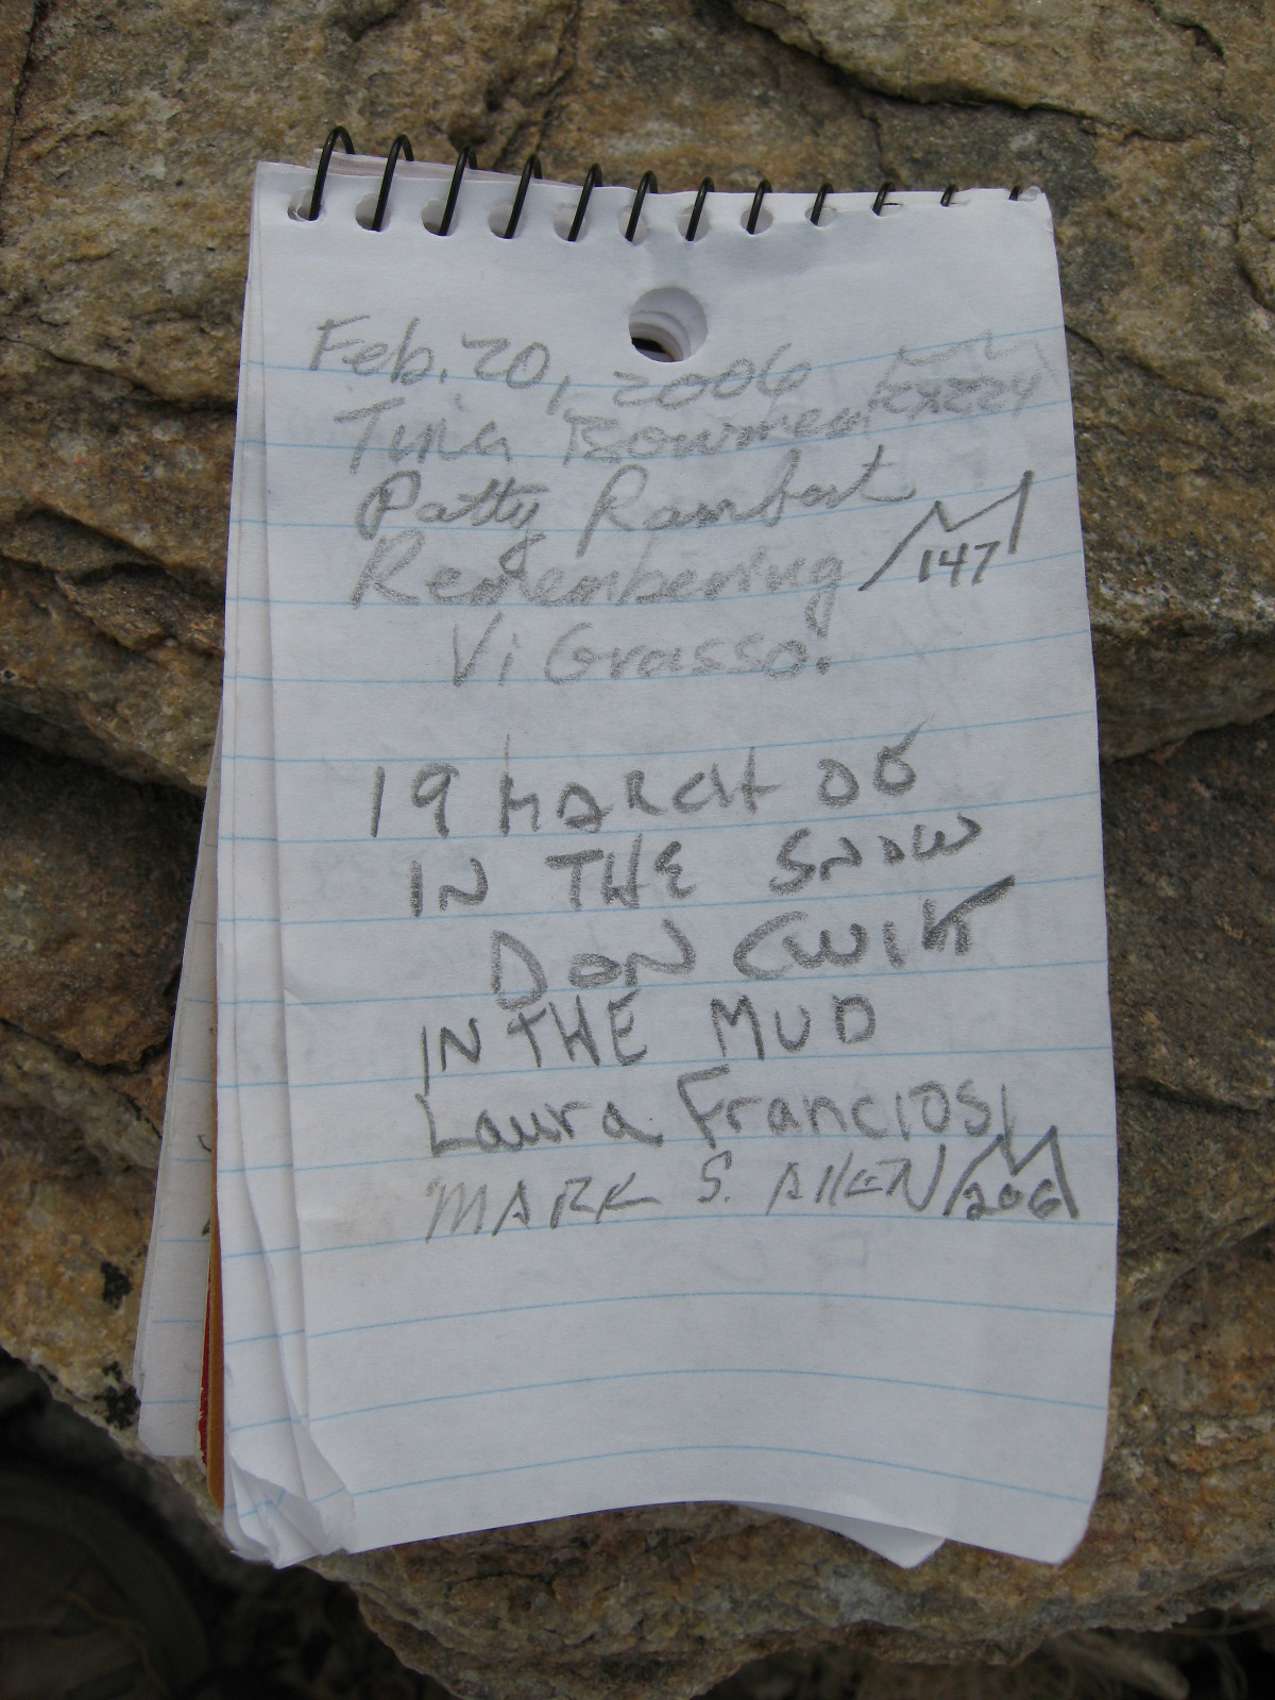 Feb. 20, 2006
Tina Bowmen
Patty Rambert
Remembering 147
Vi Grasso.
19 MARCH 06
IN THE SNOW
DON CWIK
IN THE MUD
Laura Franciosi
MARK S. AllEN 206